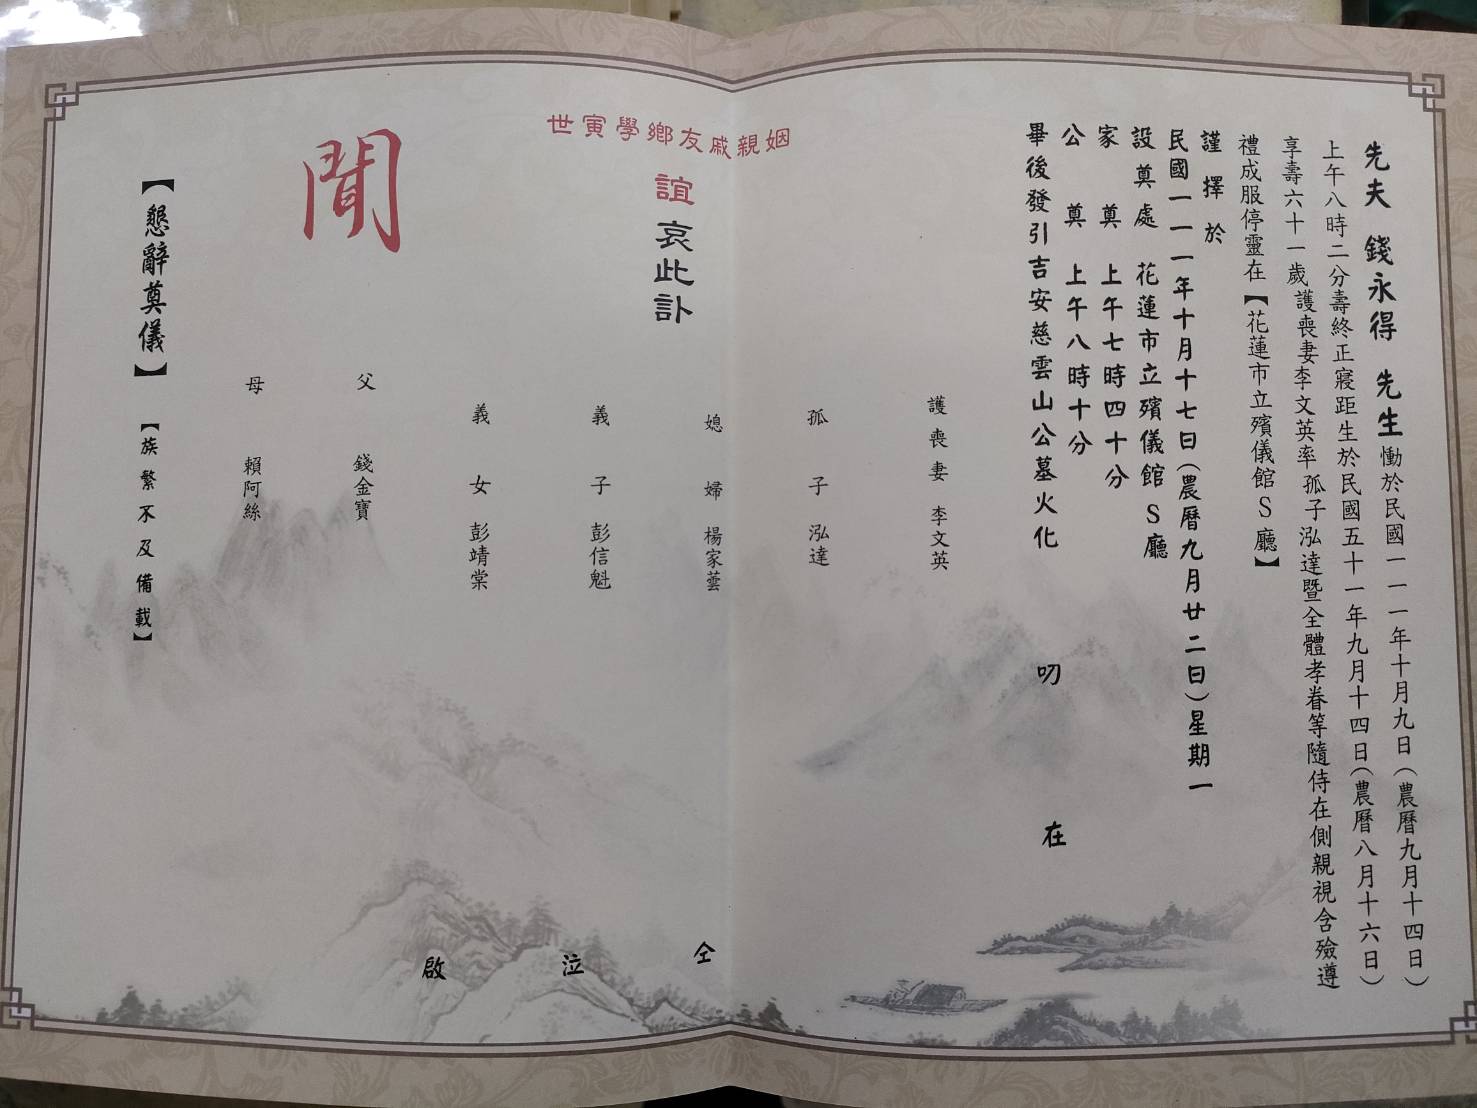 先夫 錢永得 先生慟於民國一一一年十月九日(農曆九月十四日)
上午八時二分壽終正寢距生於民國五十一年九月十四日(農曆八月十六日)
享壽六十一歲護喪妻李文英率孤子泓達暨全體孝眷等隨侍在側親視含殮遵
禮成服停靈在【花蓮市立殯儀館S廳】
謹擇於
民國一一一年十月十七日(農曆九月廿二日)星期一
設奠處 花蓮市立殯儀館S廳
家奠 上午七時四十分
公奠 上午八時十分
畢後發引吉安慈雲山公墓火化 叨 在
姻親戚友鄉學寅世
誼哀此訃
聞
護喪妻 李文英
孤子 泓達
媳婦 楊家蕓
義子 彭信魁
義女 彭靖棠
父 錢金寶
母 賴阿絲
仝 泣 啟
【懇辭奠儀】【族繁不及備載】